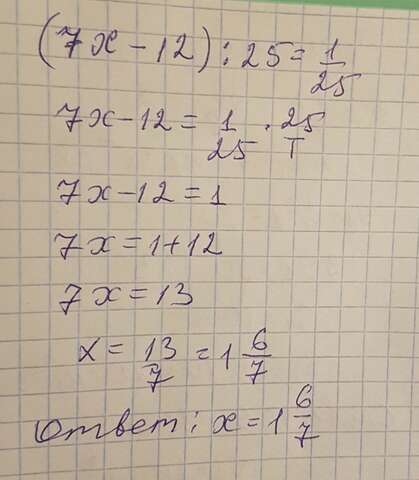 (7x - 12) : 25 = 1/25
7x - 12 = 1/25 · 25/1
7x - 12 = 1
7x = 1 + 12
7x = 13
x = 13/7 = 1 6/7
Ответ: x = 1 6/7